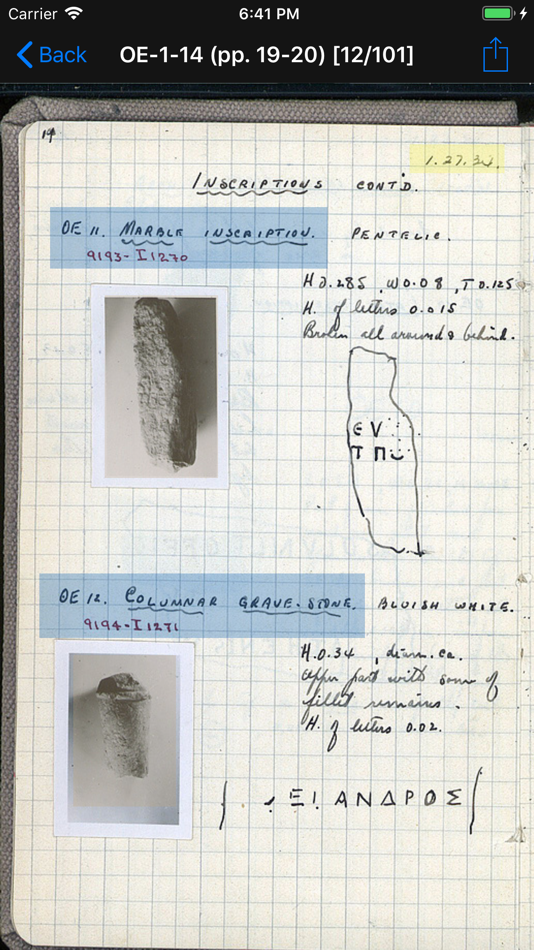 Carrier
6:41 PM
Back
OE-1-14 (pp. 19-20) [12/101]
19
1.27.34.
INSCRIPTIONS CONT'D.
OE 11. MARBLE INSCRIPTION. PENTELIC.
9193-I 1270
H 0.285, W 0.08, T 0.125
H. of letters 0.015
Broken all around & behind.
Є V
Τ Π
OE 12. COLUMNAR GRAVE-STONE. BLUISH WHITE.
9194-I 1271
H. 0.34, diam. ca.
Upper part with some of
fillet remains.
H. of letters 0.02.
ΞΙΑΝΔΡΟΣ